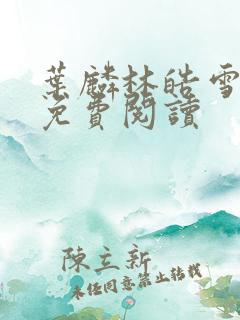 葉麟林皓雪
免費閱讀
陳立新
未經同意禁止轉載